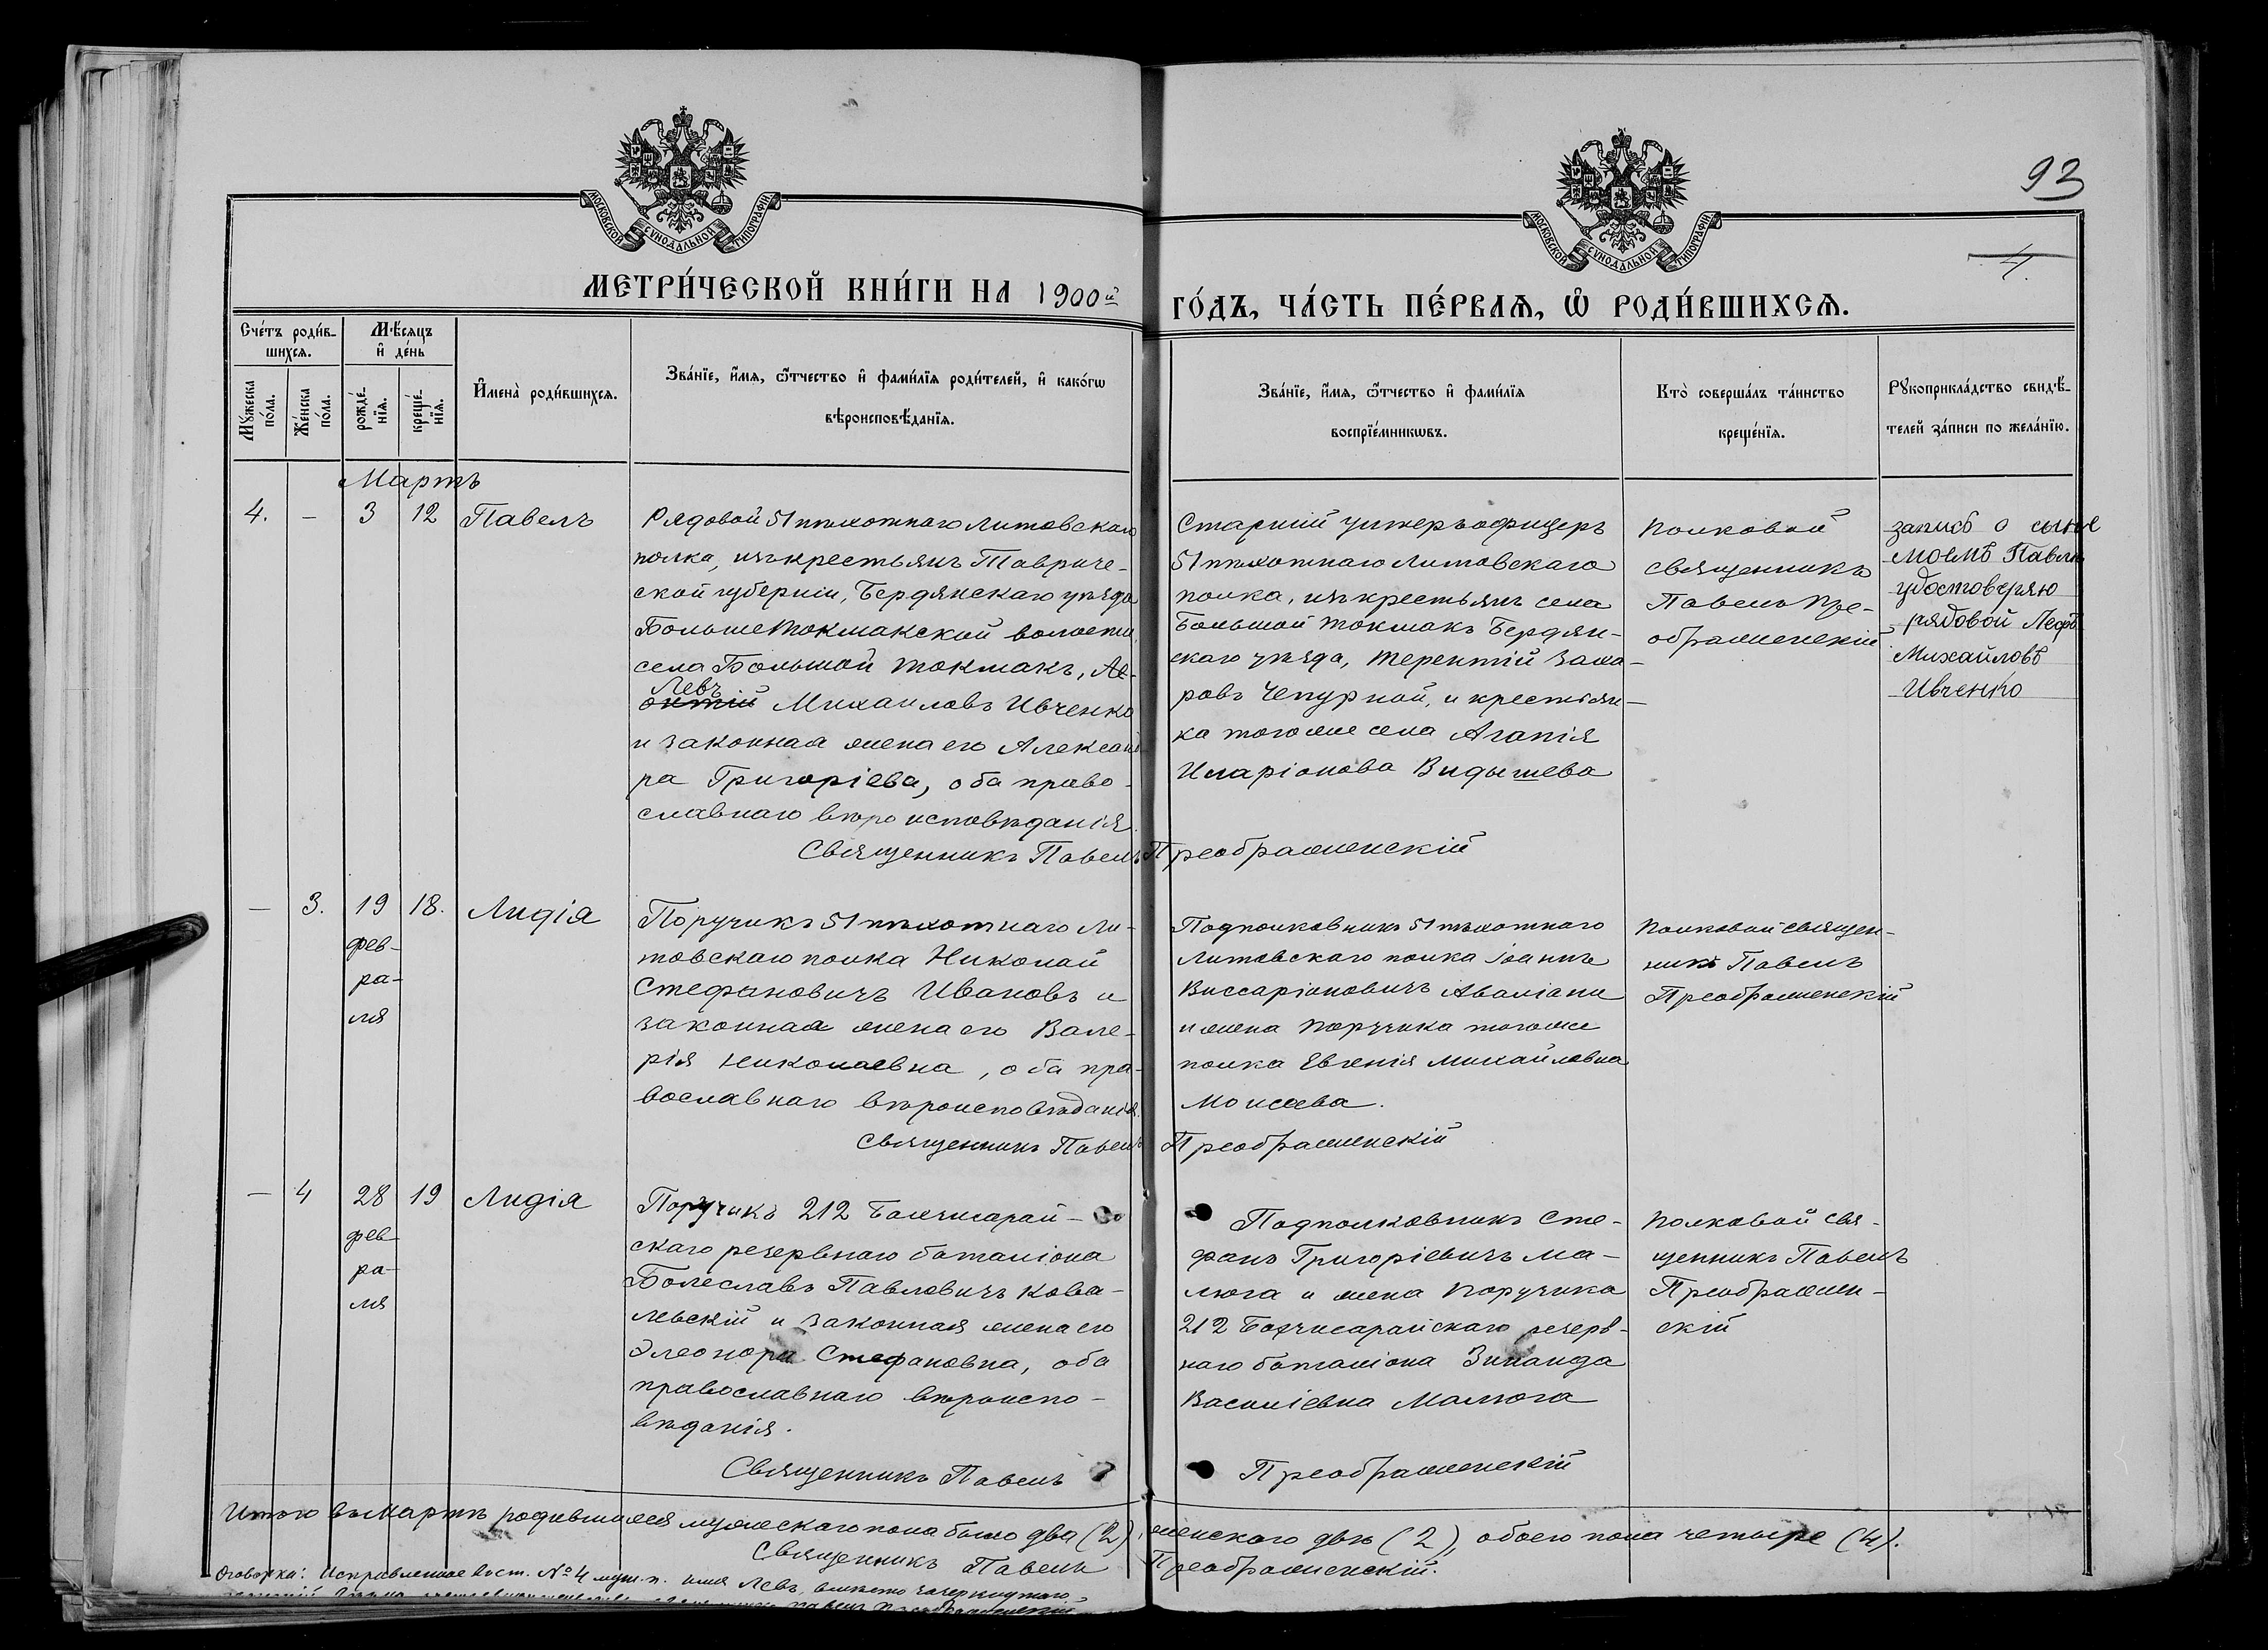 93
4.
МОСКОВСКОЙ СѴНОДАЛЬНОЙ ТИПОГРАФІИ
МОСКОВСКОЙ СѴНОДАЛЬНОЙ ТИПОГРАФІИ
МЕТРИ́ЧЕСКОЙ КНИ́ГИ НА 1900й
ГО́ДЪ, ЧА́СТЬ ПЕ́РВАѦ, Ѡ҆ РОДИ́ВШИХСѦ.
Сче́тъ роди́в-
шихсѧ.
Мѣ́сѧцъ
и҆ де́нь
Мꙋ́жеска
по́ла.
Же́нска
по́ла.
рожде́-
нїѧ.
креще́-
нїѧ.
И҆мена̀ роди́вшихсѧ.
Зва́нїе, и҆́мѧ, ѻ҆́тчество и҆ фами́лїѧ роди́телей, и҆ како́гѡ
вѣроисповѣ́данїѧ.
Зва́нїе, и҆́мѧ, ѻ҆́тчество и҆ фами́лїѧ
воспрїе́мникѡвъ.
Кто̀ соверша́лъ та́инство
креще́нїѧ.
Рꙋкоприкла́дство свидѣ́-
телей за́писи по жела́нїю.
Мартъ
4.
–
3
12
Павелъ
Рядовой 51 пѣхотнаго Литовскаго
полка, изъ крестьянъ Тавриче-
ской губерніи, Бердянскаго уѣзда
Большетокмакской волости,
села Большой Токмакъ, Ле-
Левъ
онтій Михаиловъ Ивченко
и законная жена его Александ
ра Григоріева, оба право-
славнаго вѣроисповѣданія.
Старшій унтеръ офицеръ
51 пѣхотнаго Литовскаго
полка, изъ крестьянъ села
Большой Токмакъ Бердян-
скаго уѣзда, Терентій Заха-
ровъ Чепурной, и крестьян-
ка того же села Агапія
Иларіонова Видышева
Полковой
священникъ
Павелъ Пре-
ображенскій
запись о сынѣ
моемъ Павлѣ
удостоверяю
рядовой Лефъ
Михайловъ
Ивченко
Священникъ Павелъ Преображенскій
–
3.
19
18.
фев-
ра-
ля
Лидія
Поручикъ 51 пѣхотнаго Ли-
товскаго полка Николай
Стефановичъ Ивановъ и
законная жена его Вале-
рія Николаевна, оба пра-
вославнаго вѣроисповѣданія.
Подполковникъ 51 пѣхотнаго
Литовскаго полка Іоаннъ
Виссаріоновичъ Аваліани
и жена поручика того же
полка Евгенія Михайловна
Моисеева.
Полковой священ-
никъ Павелъ
Преображенскій
Священникъ Павелъ Преображенскій
–
4
28
19
фев-
ра-
ля
Лидія
Поручикъ 212 Бахчисарай-
скаго резервнаго баталіона
Болеславъ Павловичъ Кова-
левскій и законная жена его
Элеонора Стефановна, оба
православнаго вѣроиспо-
вѣданія.
Подполковникъ Сте-
фанъ Григоріевичъ Ма-
люга и жена поручика
212 Бахчисарайскаго резерв-
наго баталіона Зинаида
Василіевна Малюга
Полковой свя-
щенникъ Павелъ
Преображен-
скій
Священникъ Павелъ Преображенскій
Итого въ Мартѣ родившихся мужескаго пола было два (2), женскаго двѣ (2), обоего пола четыре (4).
Священникъ Павелъ Преображенскій.
Оговорка: Исправленное въ ст. № 4 муж. п. имя Левъ, вмѣсто зачеркнутаго
Павелъ Преображенскій